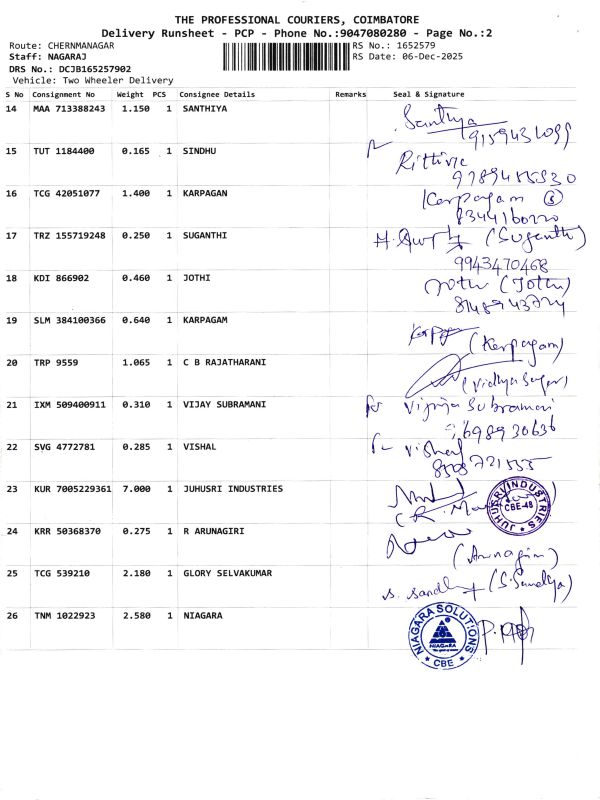 THE PROFESSIONAL COURIERS, COIMBATORE
Delivery Runsheet - PCP - Phone No.:9047080280 - Page No.:2
Route: CHERNMANAGAR RS No.: 1652579
Staff: NAGARAJ RS Date: 06-Dec-2025
DRS No.: DCJB165257902
Vehicle: Two Wheeler Delivery
S No Consignment No Weight PCS Consignee Details Remarks Seal & Signature
14 MAA 713388243 1.150 1 SANTHIYA Santhya
15 TUT 1184400 0.165 1 SINDHU
16 TCG 42051077 1.400 1 KARPAGAN Karpagam
17 TRZ 155719248 0.250 1 SUGANTHI (Suganthi)
9943470468
18 KDI 866902 0.460 1 JOTHI (Jothi)
19 SLM 384100366 0.640 1 KARPAGAM
(Karpagam)
20 TRP 9559 1.065 1 C B RAJATHARANI
(Vidhya Sagar)
21 IXM 509400911 0.310 1 VIJAY SUBRAMANI
22 SVG 4772781 0.285 1 VISHAL Vishal
23 KUR 7005229361 7.000 1 JUHUSRI INDUSTRIES JUHUSRI INDUSTRIES CBE-48
24 KRR 50368370 0.275 1 R ARUNAGIRI
(Arunagiri)
25 TCG 539210 2.180 1 GLORY SELVAKUMAR
S. Sandhya (S. Sandhya)
26 TNM 1022923 2.580 1 NIAGARA NIAGARA SOLUTIONS NIAGARA CBE